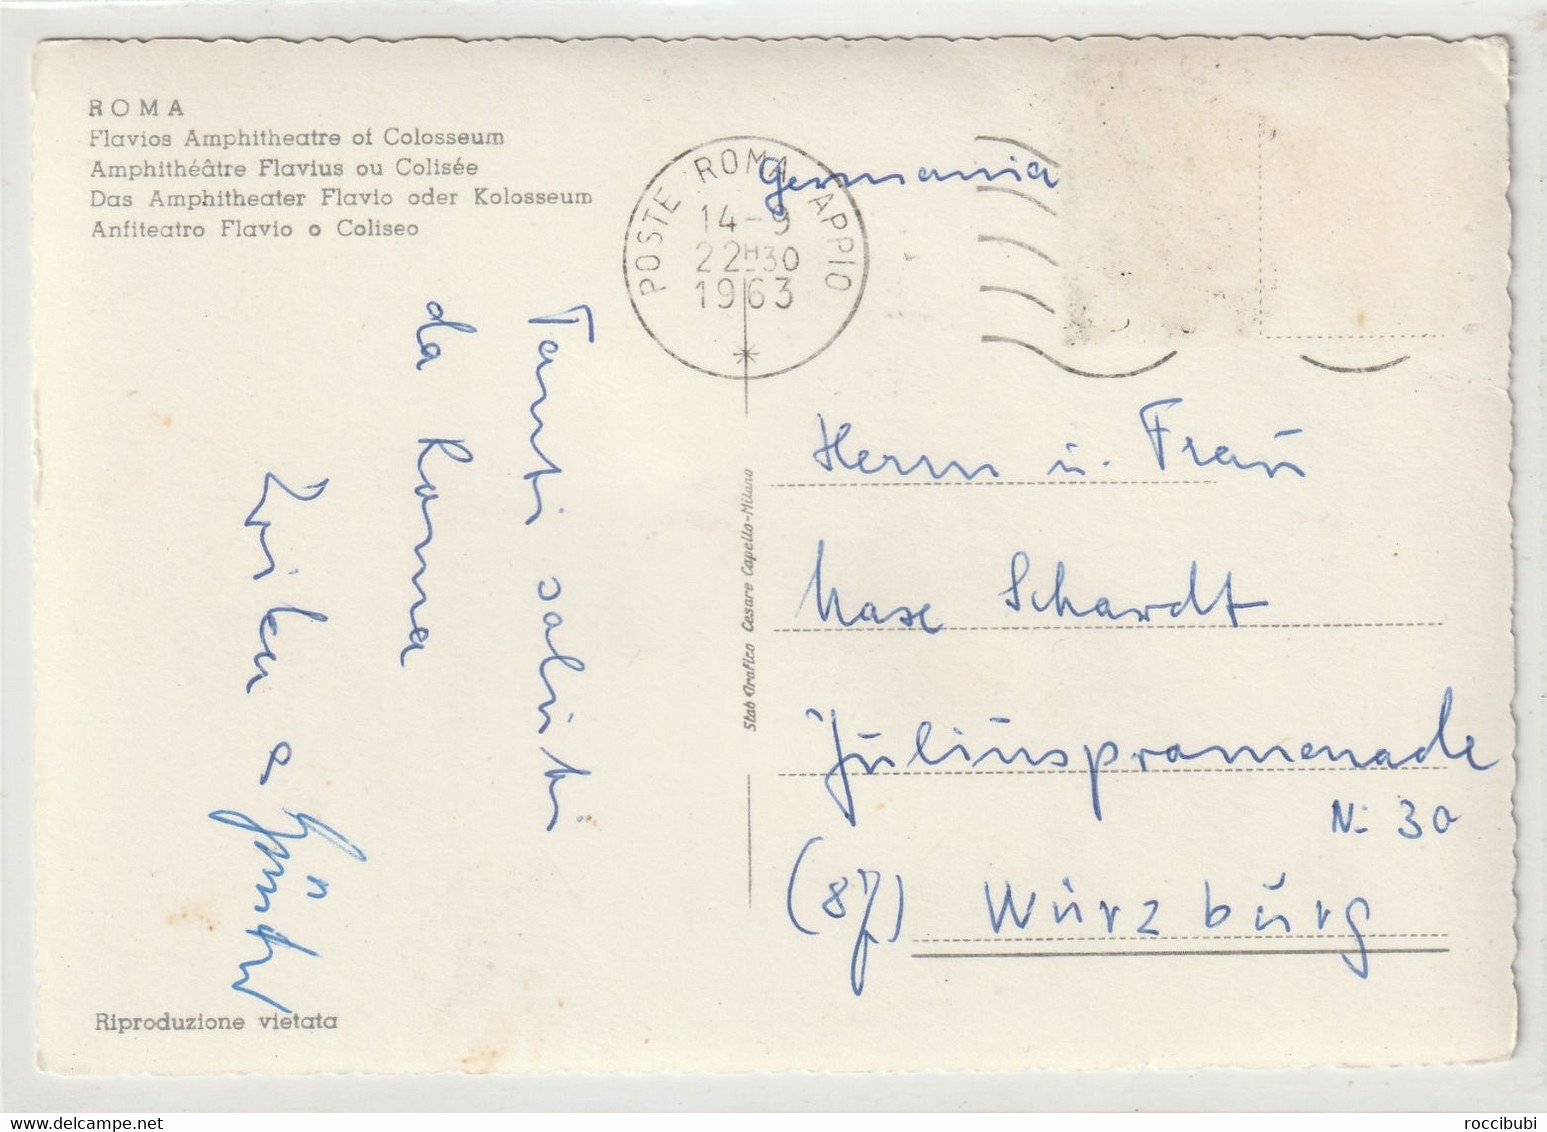 ROMA
Flavios Amphitheatre of Colosseum
Amphithéâtre Flavius ou Colisée
Das Amphitheater Flavio oder Kolosseum
Anfiteatro Flavio o Coliseo
POSTE ROMA APPIO
14-9
22H30
1963
Germania
Tanti saluti
da Roma
&
Herrn u. Frau
Max Schardt
Juliuspromenade
N: 30
(87) Würzburg
Stab Grafico Cesare Capello-Milano
Riproduzione vietata
roccibubi